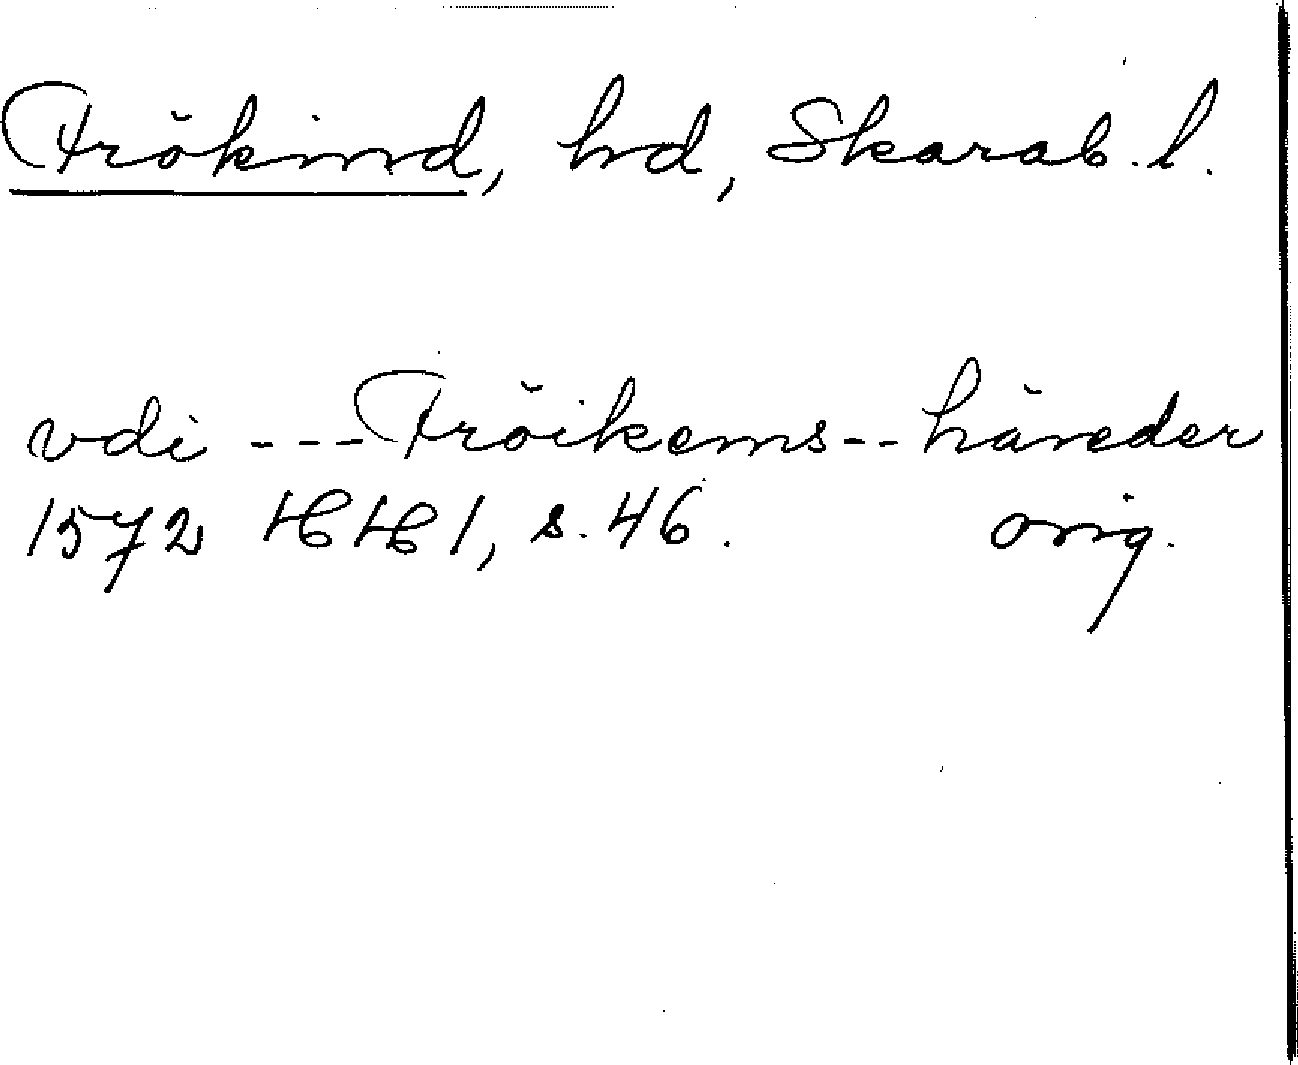 Frökind, hd, Skarab. l.
vdi --- Fröikems -- häreder
1572 HH 1, s. 46. orig.